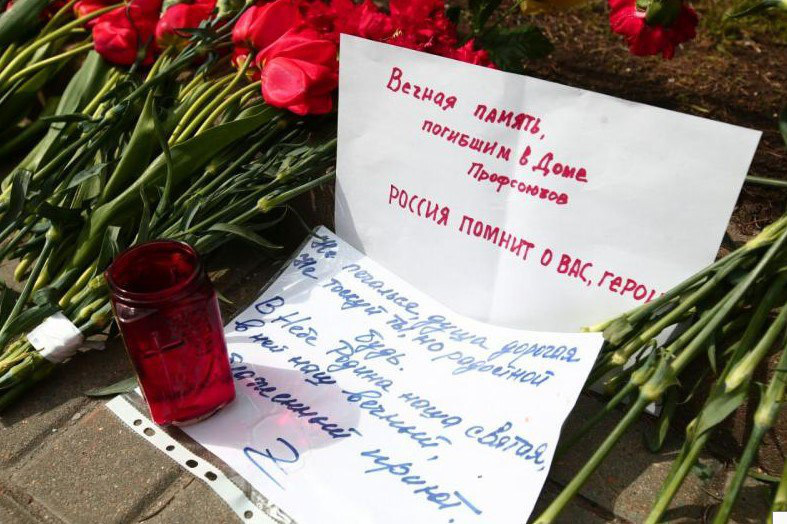 Вечная память,
погибшим в Доме
Профсоюзов
РОССИЯ ПОМНИТ О ВАС, ГЕРОИ
Не печалься, душа дорогая
Не тоскуй ты, но радостной
будь.
В Небе Родина наша святая,
в ней наш вечный,
блаженный приют.